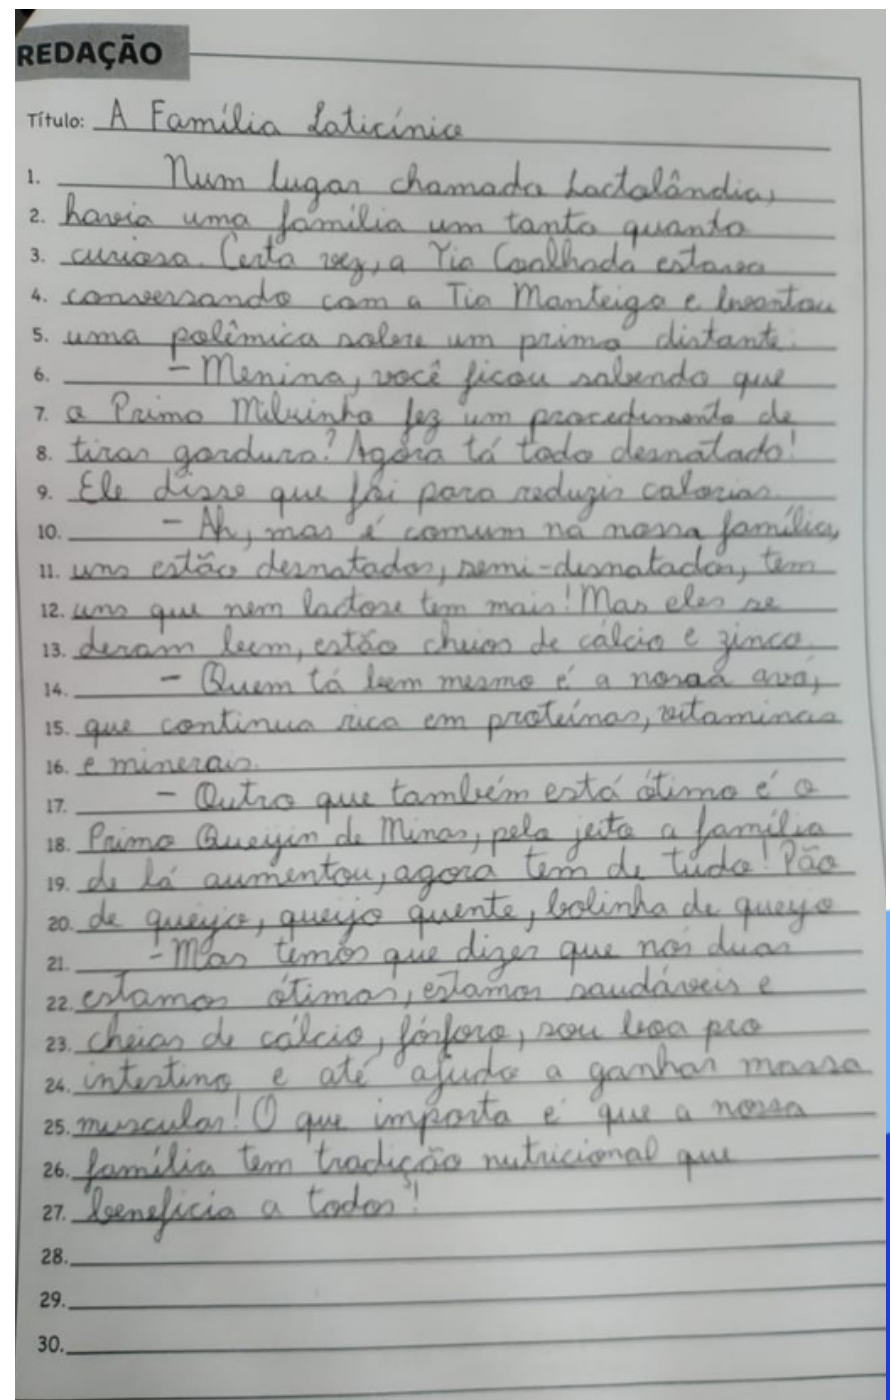 REDAÇÃO
Título: A Família Laticínica
1. Num lugar chamado Lactalândia,
2. havia uma família um tanto quanto
3. curiosa. Certa vez, a Tia Coalhada estava
4. conversando com a Tia Manteiga e levantou
5. uma polêmica sobre um primo distante.
6. – Menina, você ficou sabendo que
7. o Primo Milkinho fez um procedimento de
8. tirar gordura? Agora tá todo desnatado!
9. Ele disse que foi para reduzir calorias.
10. – Ah, mas é comum na nossa família,
11. uns estão desnatados, semi-desnatados, tem
12. uns que nem lactose tem mais! Mas eles se
13. deram bem, estão cheios de cálcio e zinco.
14. – Quem tá bem mesmo é a nossa avó,
15. que continua rica em proteínas, vitaminas
16. e minerais.
17. – Outro que também está ótimo é o
18. Primo Queijin de Minas, pelo jeito a família
19. de lá aumentou, agora tem de tudo! Pão
20. de queijo, queijo quente, bolinha de queijo
21. – Mas temos que dizer que nós duas
22. estamos ótimas, estamos saudáveis e
23. cheias de cálcio, fósforo, sou boa pro
24. intestino e até ajudo a ganhar massa
25. muscular! O que importa é que a nossa
26. família tem tradição nutricional que
27. beneficia a todos!
28.
29.
30.